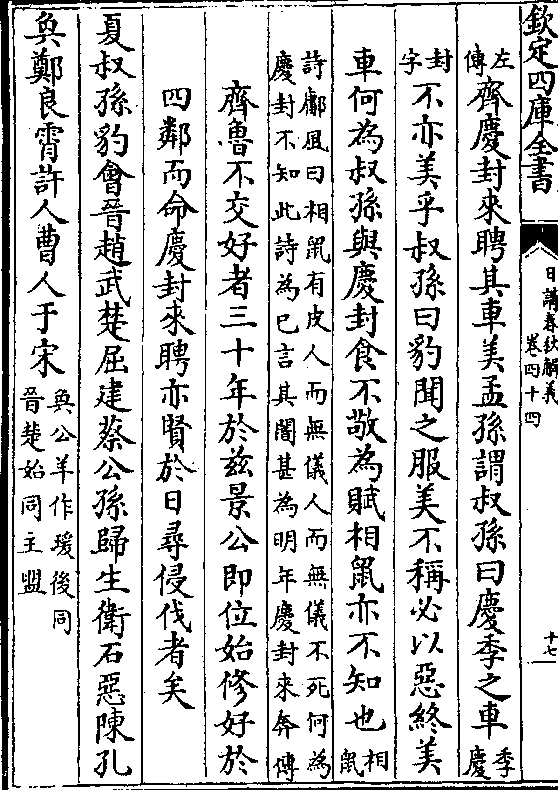 欽定四庫全書
日講春秋解義
卷四十四
十七
左傳齊慶封來聘其車美孟孫謂叔孫曰慶季之車季慶
封字不亦美乎叔孫曰豹聞之服美不稱必以惡終美
車何為叔孫與慶封食不敬為賦相鼠亦不知也相鼠
詩鄘風曰相鼠有皮人而無儀人而無儀不死何為
慶封不知此詩為已言其闇甚為明年慶封來奔傳
齊魯不交好者三十年於兹景公即位始修好於
四鄰而命慶封來聘亦賢於日尋侵伐者矣
夏叔孫豹會晉趙武楚屈建蔡公孫歸生衛石惡陳孔
奐鄭良霄許人曹人于宋
奐公羊作瑗後同
晉楚始同主盟